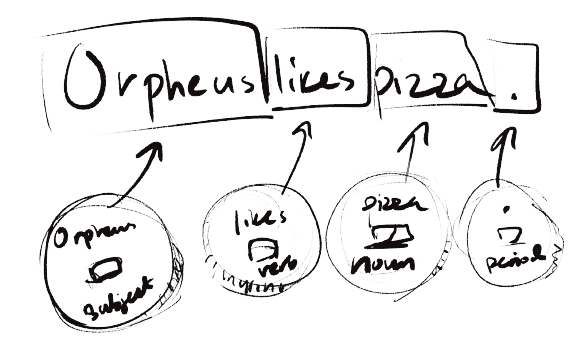 Orpheus likes pizza.
Orpheus
subject
likes
verb
pizza
noun
.
period